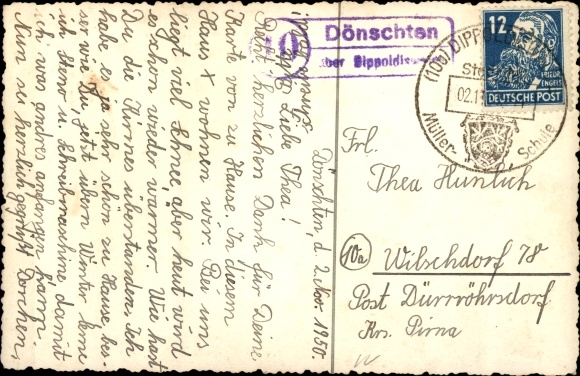 10
Dönschten
über Dippoldiswalde
12
FRIEDR. ENGELS
DEUTSCHE POST
(10a) DIPPOLDIS
02.1
Müller-Schule
Dönschten, d. 2. Nov. 1950.
Liebe Thea!
Recht herzlichen Dank für Deine
Karte von zu Hause. In diesem
Haus x wohnen wir. Bei uns
liegt viel Schnee, aber heut wird
es schon wieder warmer. Wie hast
Du die Kirmes überstanden. Ich
habe es ja sehr schön zu Hause, bes-
ser wie Du, jetzt übern Winter lerne
ich Steno u. Schreibmaschine damit
ich was andres anfangen kann.
Nun sei herzlich gegrüßt Dorchen.
Frl.
Thea Hunlich
10a
Wilschdorf 78
Post Dürrröhrsdorf
Krs. Pirna